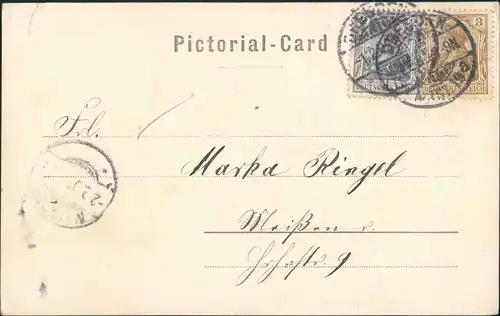 Pictorial-Card
3
DEUTSCHES REICH
DEUTSCHES REICH
Frl.
Marka Ringel
Meißen r.
9